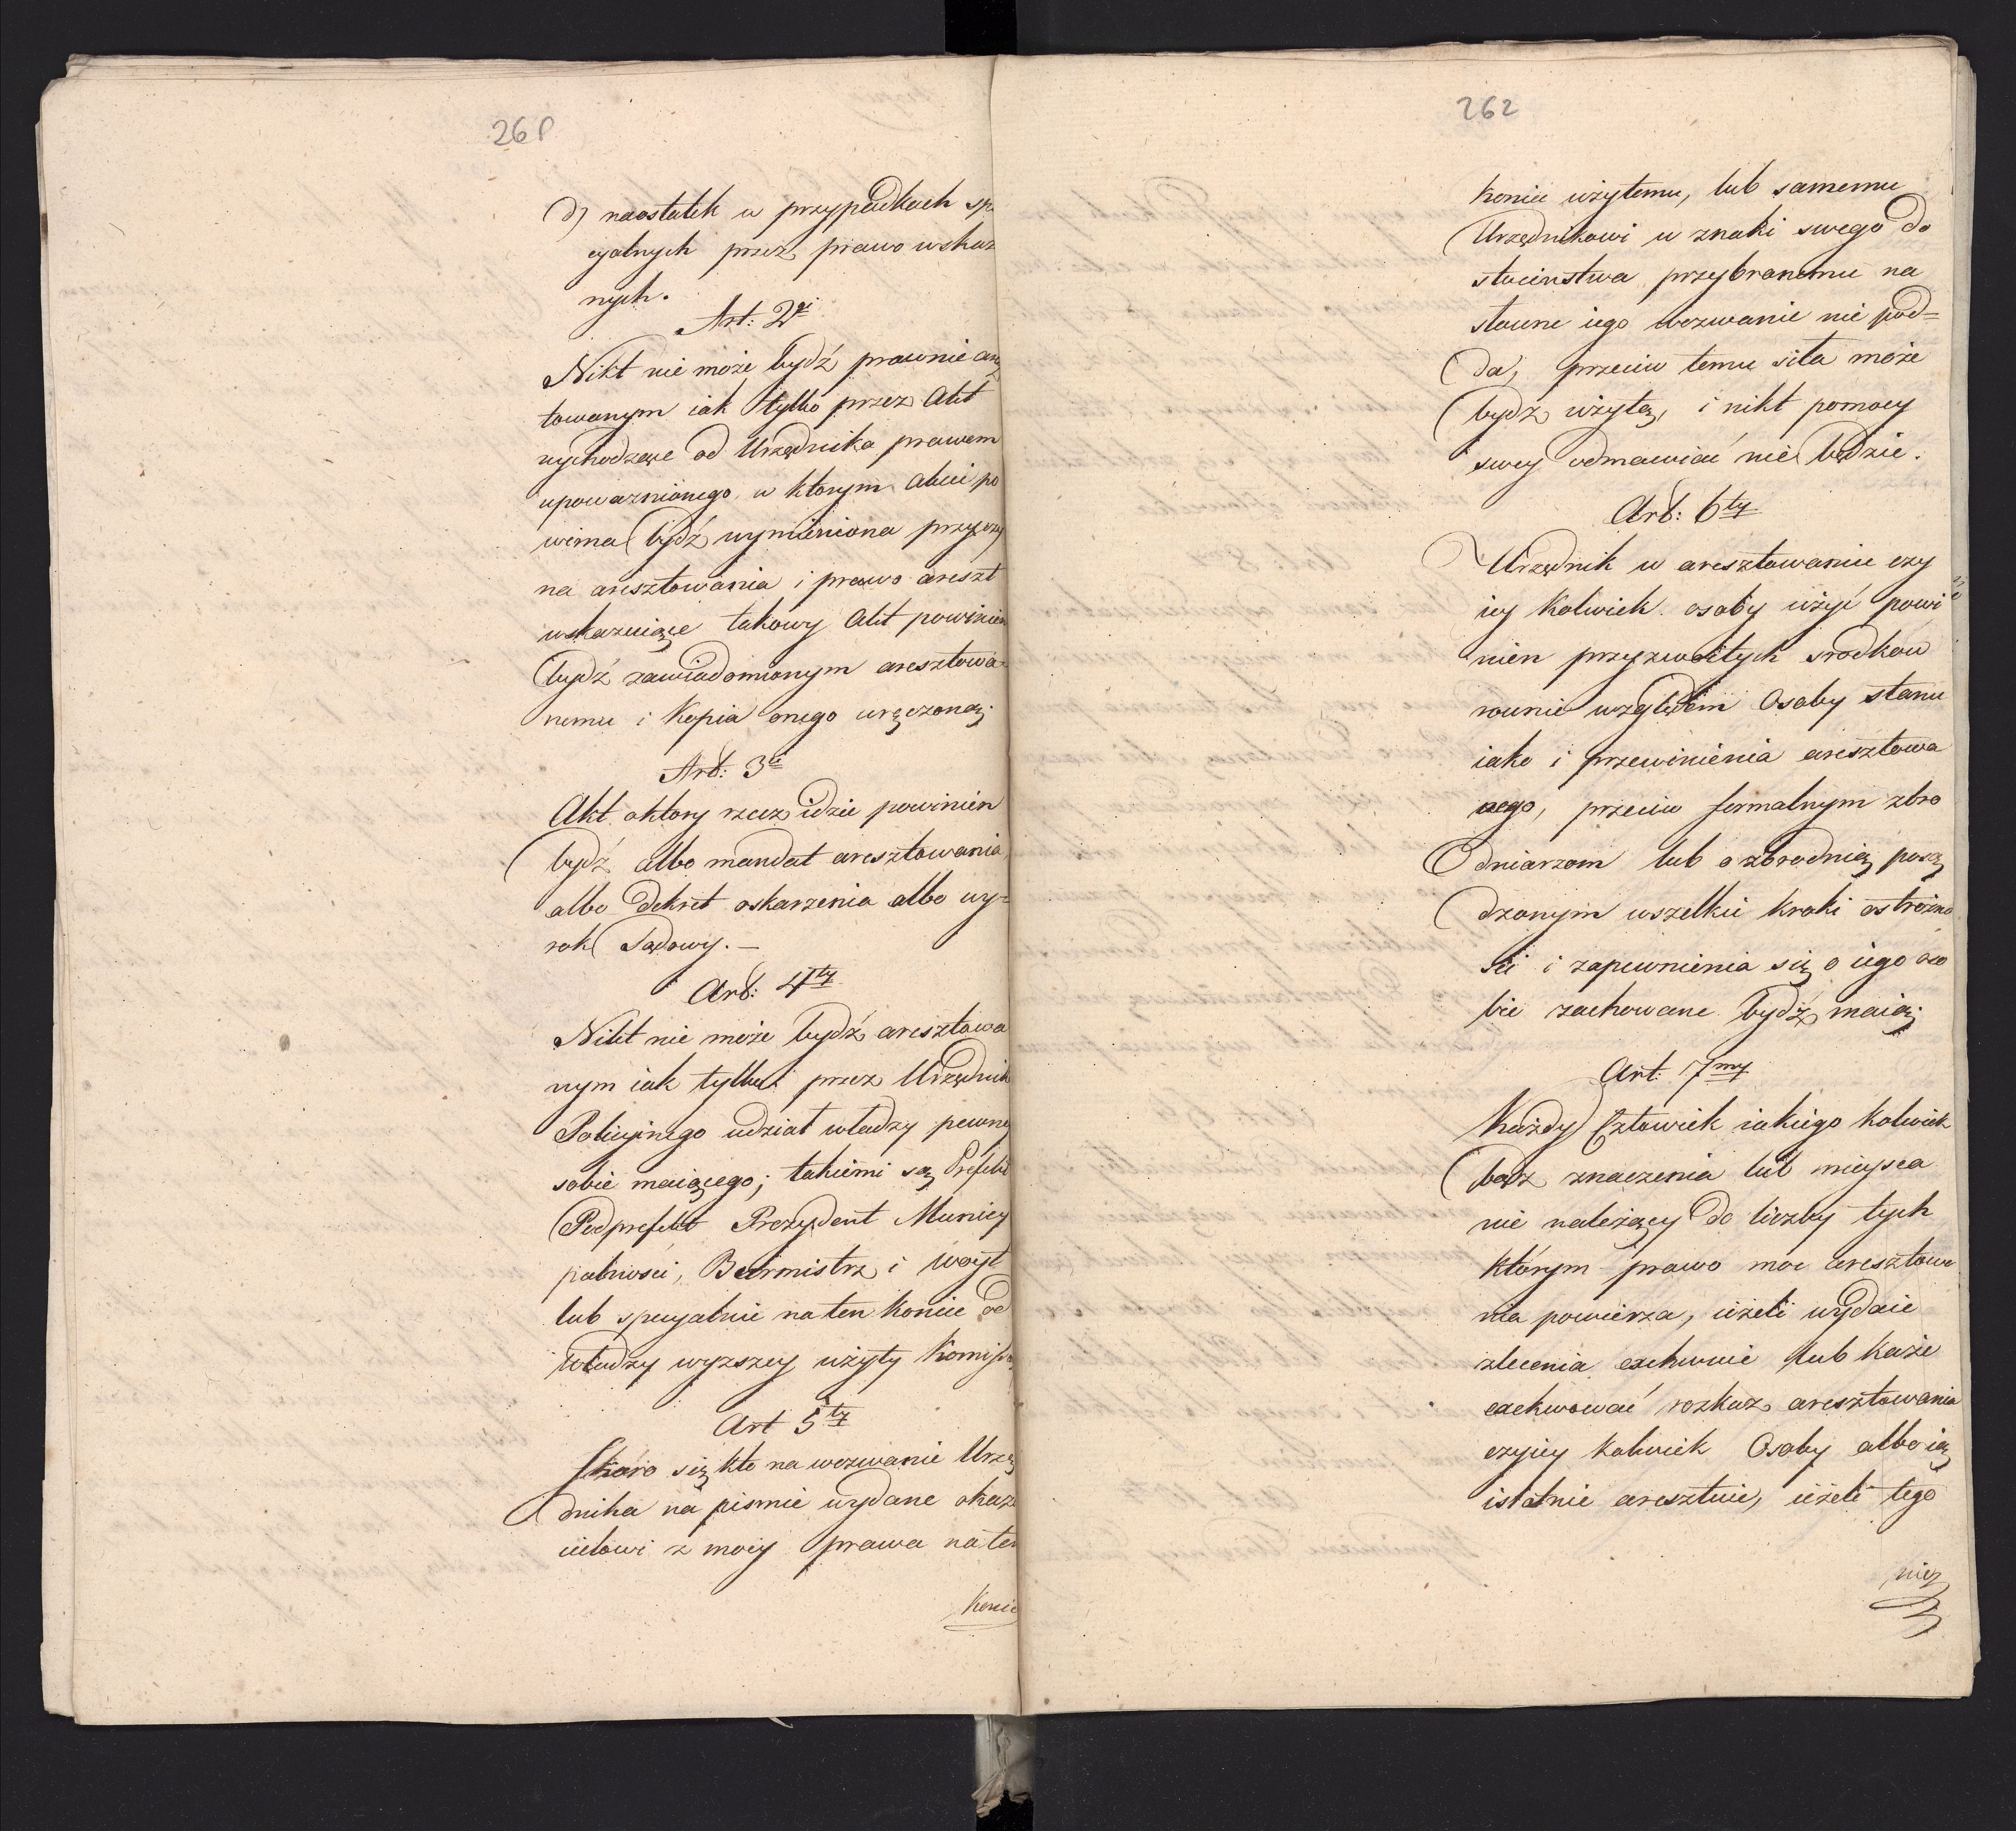 261
d) naostatek w przypadkach spe
cyalnych przez prawo wskaz
nych.
Art: 2gi
Nikt nie może bydź prawnie aresz
towanym iak tylko przez Akt
wychodzące od Urzędnika prawem
upoważnionego, w ktorym Akcie po
winna bydź wymieniona przyczy
na aresztowania i prawo areszt
wskazuiące takowy Akt powinien
bydź zawiadomionym aresztowa=
nemu i Kopia onego wręczoną.
Art: 3ci
Akt o ktory rzecz idzie powinien
bydź albo mandat aresztowania
albo Dekret oskarzenia albo wy=
rok Sądowy. —
Art: 4ty
Nikt nie może bydź aresztowa
nym iak tylko przez Urzędnik
Policyinego udział władzy pewny
sobie maiącego; takiemi są Prefekt
Podprefekt Prezydent Municy
palności, Burmistrz i Woyt
lub specyalnie na ten koniec od
Władzy wyzszey użyty Komissarz
Art 5ty
Skoro się kto na wezwanie Urzę
dnika na pismie wydane okazi
cielowi z mocy prawa na ten
Konie
262
koniec użytemu, lub samemu
Urzędnikowi w znaki swego Do
stoieństwa przybranemu na
słowne iego wezwanie nie pod=
da, przeciw temu siła może
bydz użytą, i nikt pomocy
swey odmawiać nie będzie.
Art: 6ty
Urzędnik w aresztowaniu czy
iey kolwiek osoby użyć powi
nien przyzwoitych srodkow
rownie względem Osoby stanu
iako i przewinienia aresztowa
nego, przeciw formalnym zbro
dniarzom lub o zbrodnią posą
dzonym wszelkie kroki ostrożno
ści i zapewnienia się o iego oso
bie zachowane bydź maią.
Art: 7my
Każdy Człowiek iakiego kolwiek
bądz znaczenia lub mieysca
nie należący do liczby tych
którym prawo moc aresztowa
nia powierza, ieżeli wydaie
zlecenia exekwuie lub każe
exekwować rozkaz aresztowania
czyiey kolwiek Osoby albo ią
istotnie aresztuie, ieżeli tego
nie